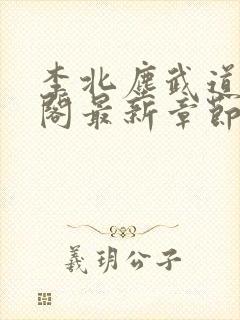 李北塵武道
閣最新章節
義玥公子